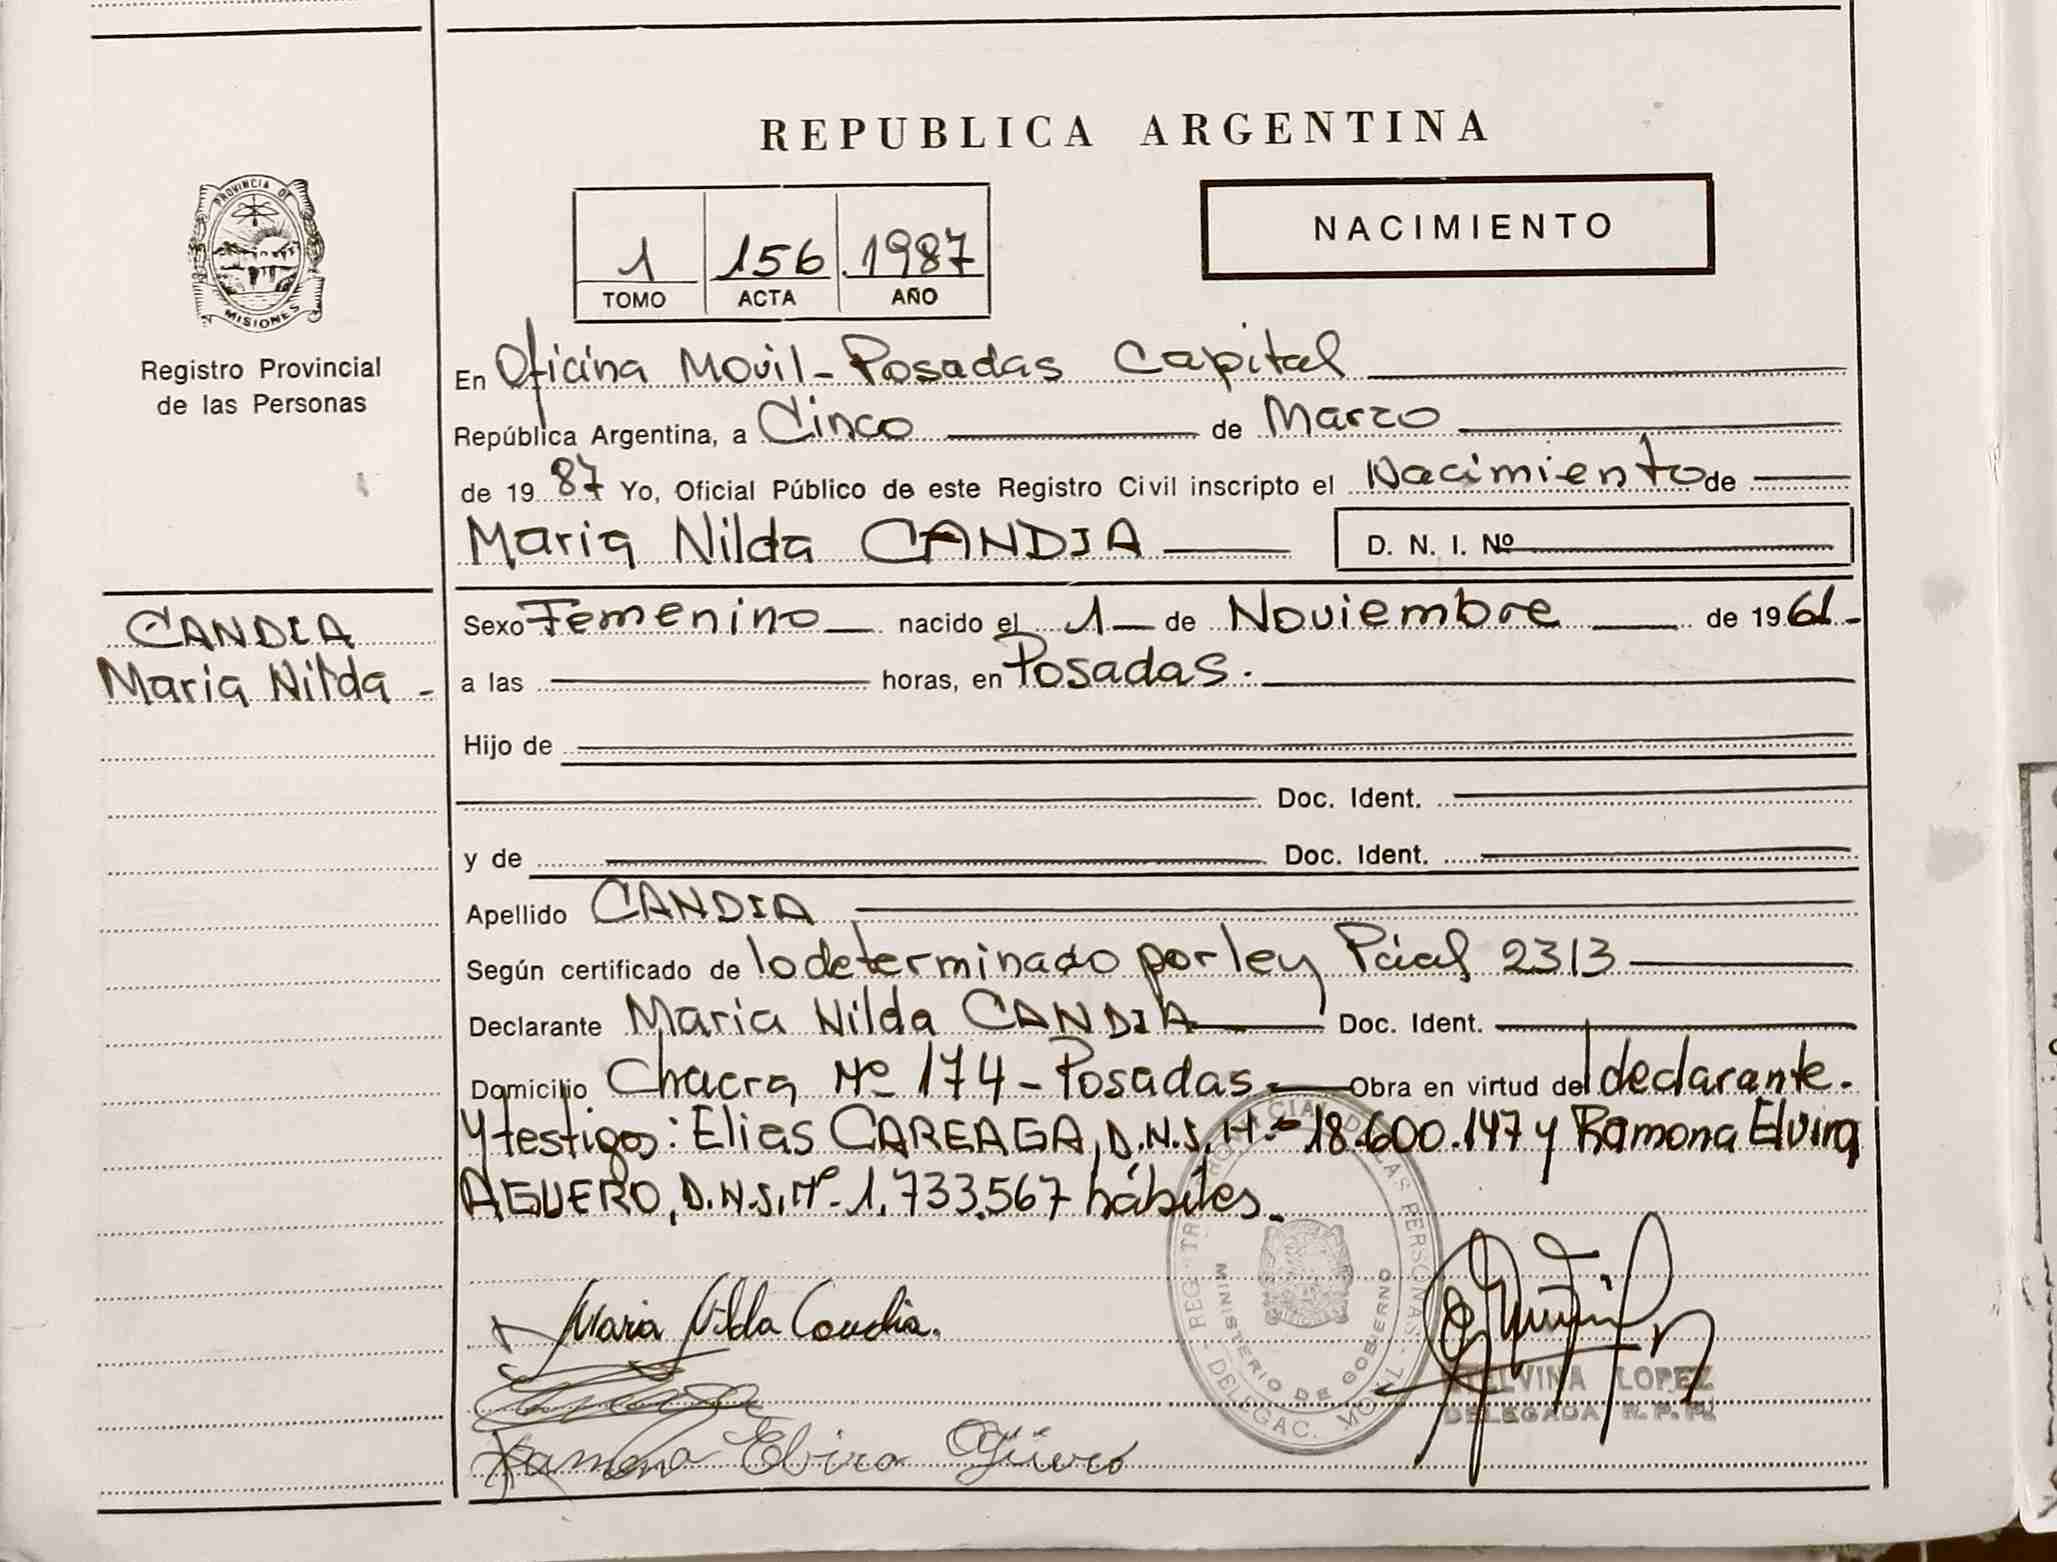 REPUBLICA ARGENTINA
PROVINCIA DE MISIONES
Registro Provincial
de las Personas
1 156 1987
TOMO ACTA AÑO
NACIMIENTO
En Oficina Movil - Posadas Capital
República Argentina, a Cinco de Marzo
de 1987 Yo, Oficial Público de este Registro Civil inscripto el Nacimiento de
Maria Nilda CANDIA D. N. I. Nº
CANDIA
Maria Nilda -
Sexo Femenino nacido el 1 de Noviembre de 1961.-
a las horas, en Posadas.
Hijo de
Doc. Ident.
y de Doc. Ident.
Apellido CANDIA
Según certificado de lo determinado por ley Pcial 2313
Declarante Maria Nilda CANDIA Doc. Ident.
Domicilio Chacra Nº 174 - Posadas.- Obra en virtud del declarante.
Y testigos: Elias CAREAGA, D.N.I. Nº 18.600.147 y Ramona Elvira
AGUERO, D.N.I. Nº 1.733.567 hábiles.
Maria Nilda Candia.
Ramona Elvira Agüero
REG. PROVINCIAL DE LAS PERSONAS
MINISTERIO DE GOBIERNO
DELEGAC. MOVIL
LOPEZ
DELEGADA R. P. P.